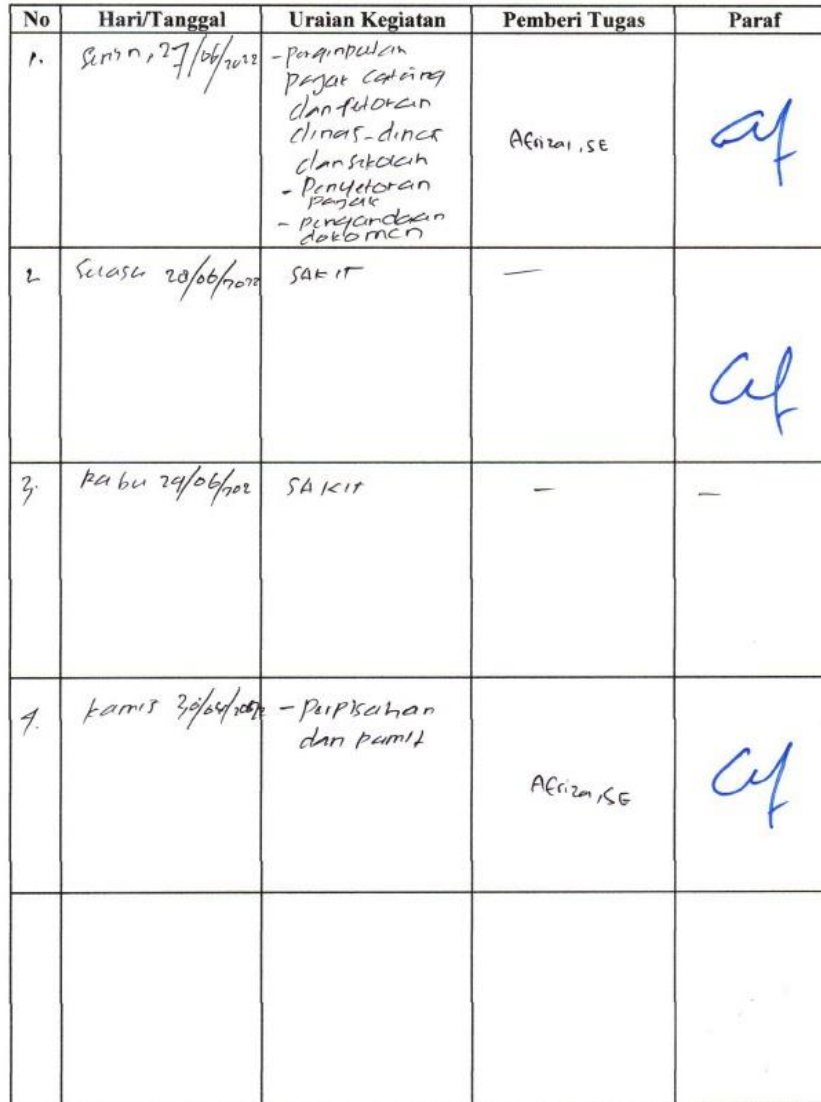 No Hari/Tanggal Uraian Kegiatan Pemberi Tugas Paraf
1. Senin, 27/06/2022 -penginputan
pajak catering
dan setoran
dinas-dinas
dan sekolah
- Penyetoran
pajak
- pengandaan
dokomen
Afrizal, SE
2 Selasa 28/06/2022 SAKIT —
3. Rabu 29/06/202 SAKIT — —
4. kamis 30/06/2022 - Perpisahan
dan pamit
Afrizal, SE